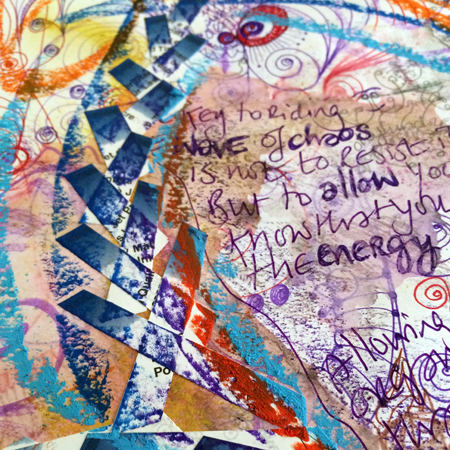 Key to Riding
WAVE of chaos
is not to Resist
But to allow you
know that you
the energy
allowing